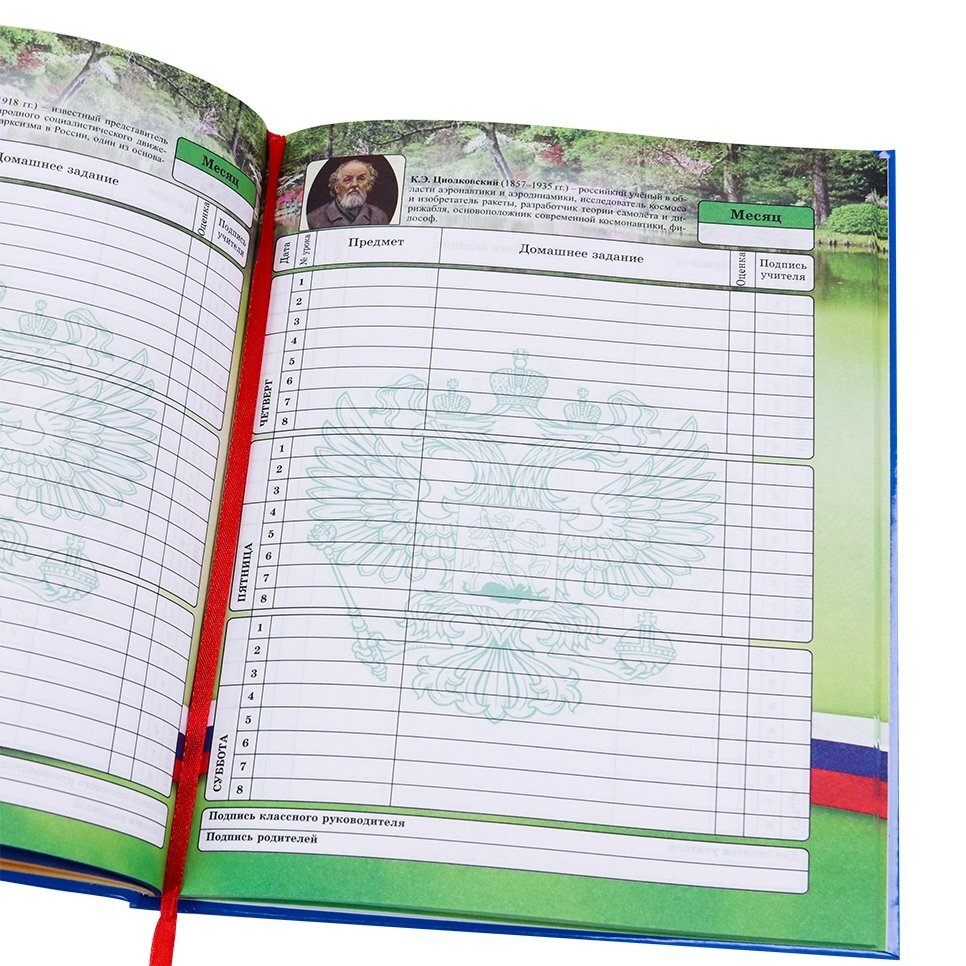 918 гг.) – известный представитель
ародного социалистического движе-
арксизма в России, один из основа-
Месяц
Домашнее задание
Оценка
Подпись
учителя
К.Э. Циолковский (1857–1935 гг.) – российский учёный в об-
ласти аэронавтики и аэродинамики, исследователь космоса
и изобретатель ракеты, разработчик теории самолёта и ди-
рижабля, основоположник современной космонавтики, фи-
лософ.
Месяц
Дата
№ урока
Предмет
Домашнее задание
Оценка
Подпись
учителя
ЧЕТВЕРГ
1
2
3
4
5
6
7
8
ПЯТНИЦА
1
2
3
4
5
6
7
8
СУББОТА
1
2
3
4
5
6
7
8
Подпись классного руководителя
Подпись родителей